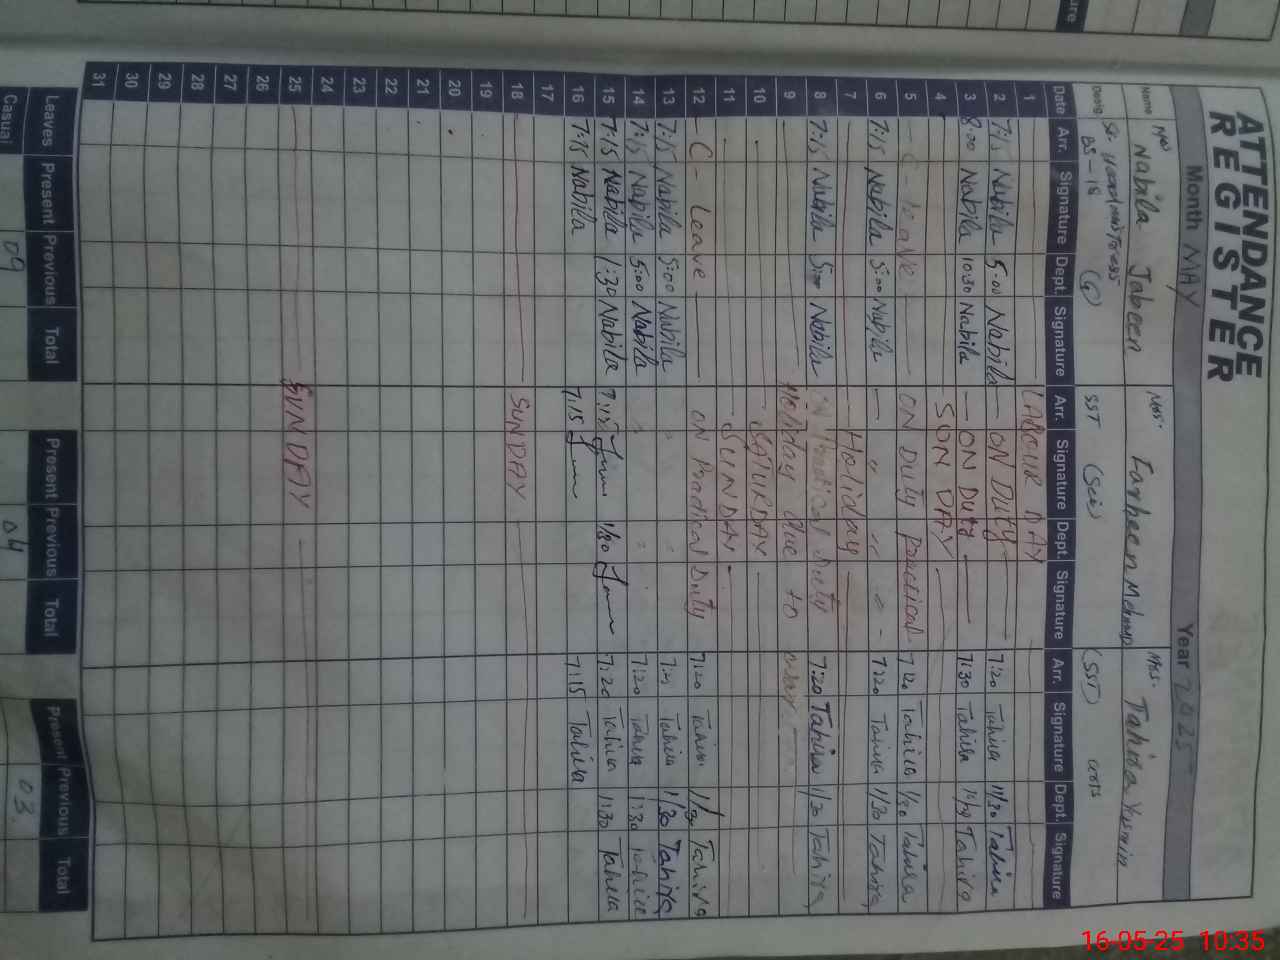 ATTENDANCE
REGISTER
Month MAY Year 2025
Name Mrs. Nabila Jabeen Mrs. Farheen Mrs. Tahira Yasmin
Desig. Sr. Headmistress (G) SST (Sci) (SST) arts
BS-18
Date Arr. Signature Dept. Signature Arr. Signature Dept. Signature Arr. Signature Dept. Signature
1 LABOUR DAY
2 7:15 Nabila 5:00 Nabila ON Duty 7:20 Tahira 11/30 Tahira
3 8:00 Nabila 10:30 Nabila ON Duty 7:30 Tahira Tahira
4 SUN DAY
5 C-leave ON Duty Practical 7:20 Tahira 1/30 Tahira
6 7:15 Nabila 5:00 Nabila " " " 7:20 Tahira 1/30 Tahira
7 Holiday
8 7:15 Nabila 5:00 Nabila ON Practical Duty 7:20 Tahira 1/30 Tahira
9 Holiday due to
10 SATURDAY
11 SUNDAY
12 C-Leave ON Practical Duty 7:20 Tahira 1/30 Tahira
13 7:15 Nabila 5:00 Nabila Tahira 1/30 Tahira
14 7:15 Nabila 5:00 Nabila 7:20 Tahira 1:30 Tahira
15 7:15 Nabila 1:30 Nabila 7:15 1/30 7:20 Tahira 1:30 Tahira
16 7:15 Nabila 7:15 7:15 Tahira
17
18 SUNDAY
19
20
21
22
23
24
25 SUNDAY
26
27
28
29
30
31
Leaves Present Previous Total Present Previous Total Present Previous Total
Casual 09 04 03
16-05-25 10:35